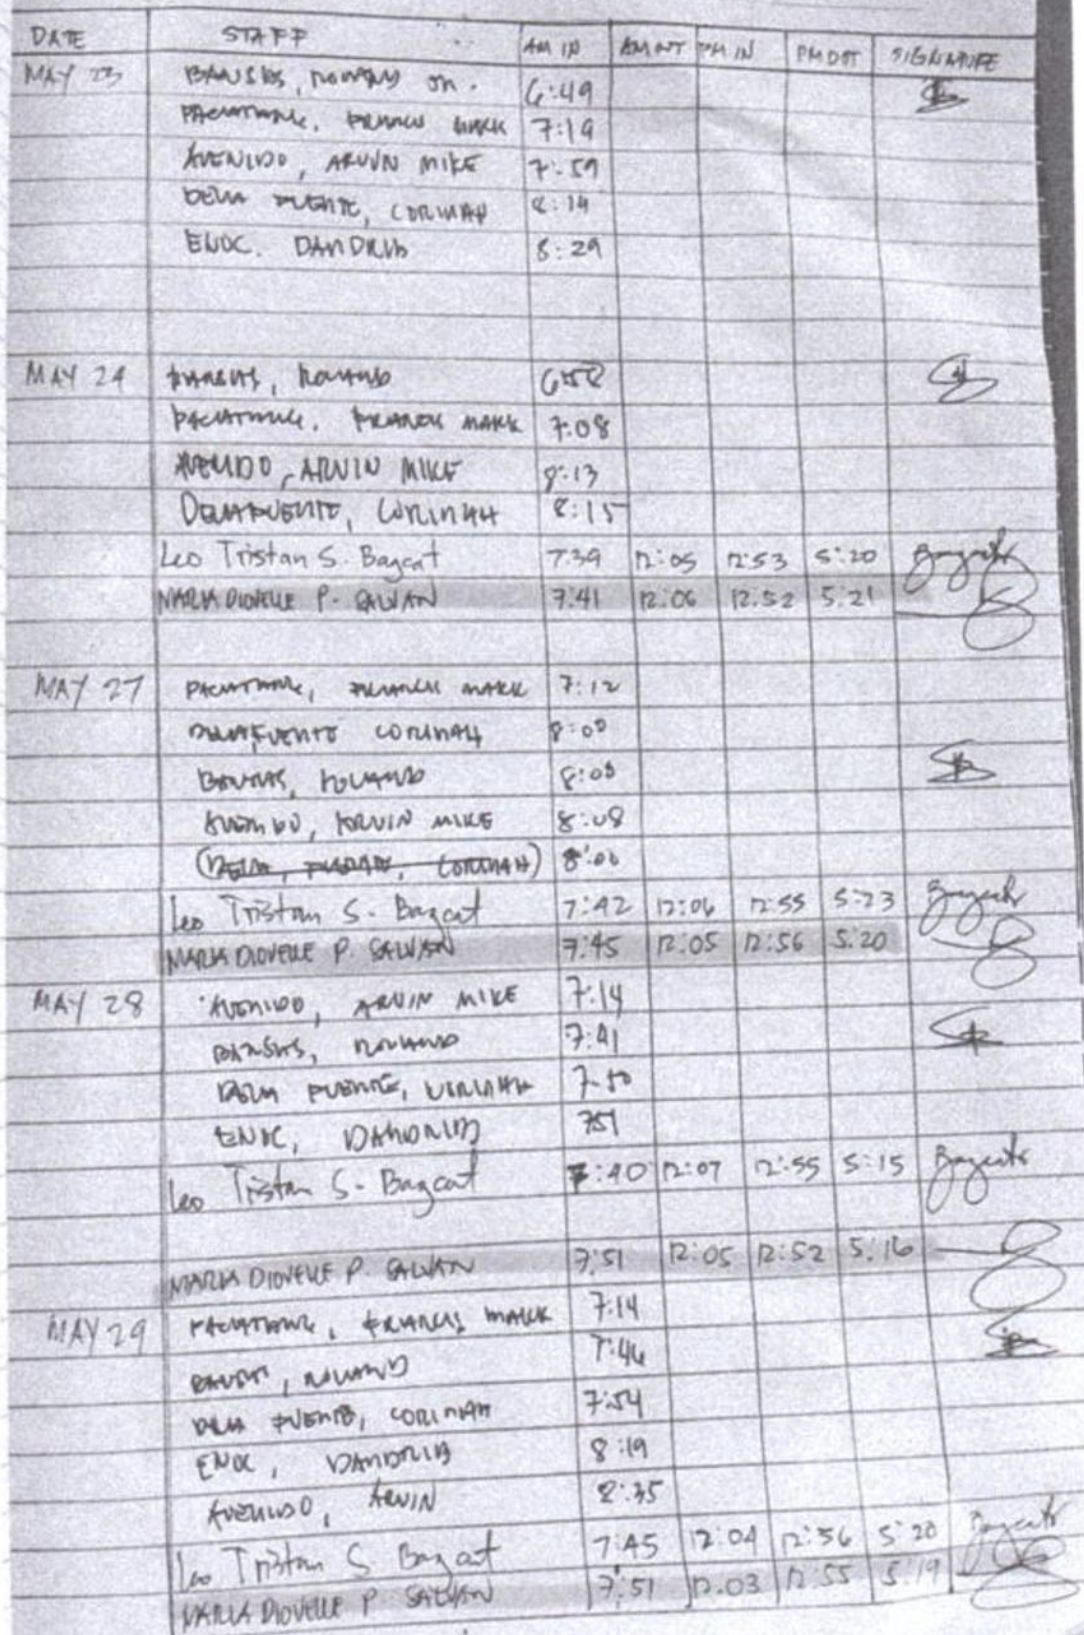 DATE STAFF AM IN AM OUT PM IN PM OUT SIGNATURE
MAY 23 BANSUS, ROLANDO JR. 6:49
PACIATTONE, FRANCIS MARK 7:19
AVENIDO, ARVIN MIKE 7:59
DELA FUENTE, CORINAH 8:14
ENOC. DANDRIB 8:29
MAY 24 ROLANDO
FRANCIS MARK 7:08
AVENIDO, ARVIN MIKE 8:13
DELAFUENTE, CORINAH 8:15
Leo Tristan S. Bagcat 7:39 12:05 12:53 5:20
MARIA DIOVELLE P. GALVAN 7:41 12:06 12:52 5:21
MAY 27 FRANCIS MARK 7:12
DELAFUENTE CORINAH 8:00
ROLANDO 8:03
AVENIDO, ARVIN MIKE 8:08
(DELA FUENTE, CORINAH) 8:00
Leo Tristan S. Bagcat 7:42 12:06 12:55 5:23
MARIA DIOVELLE P. GALVAN 7:45 12:05 12:56 5:20
MAY 28 AVENIDO, ARVIN MIKE 7:14
BANSUS, ROLANDO 7:41
DELA FUENTE, CORINAH 7:50
ENOC, DANDRIB 751
Leo Tristan S. Bagcat 7:40 12:07 12:55 5:15
MARIA DIOVELLE P. GALVAN 7:51 12:05 12:52 5:16
MAY 29 FRANCIS MARK 7:14
ROLANDO 7:46
DELA FUENTE, CORINAH 7:54
ENOC, DANDRIB 8:19
AVENIDO, ARVIN 8:35
Leo Tristan S Bagcat 7:45 12:04 12:56 5:20
MARIA DIOVELLE P GALVAN 7:51 12.03 12:55 5:19